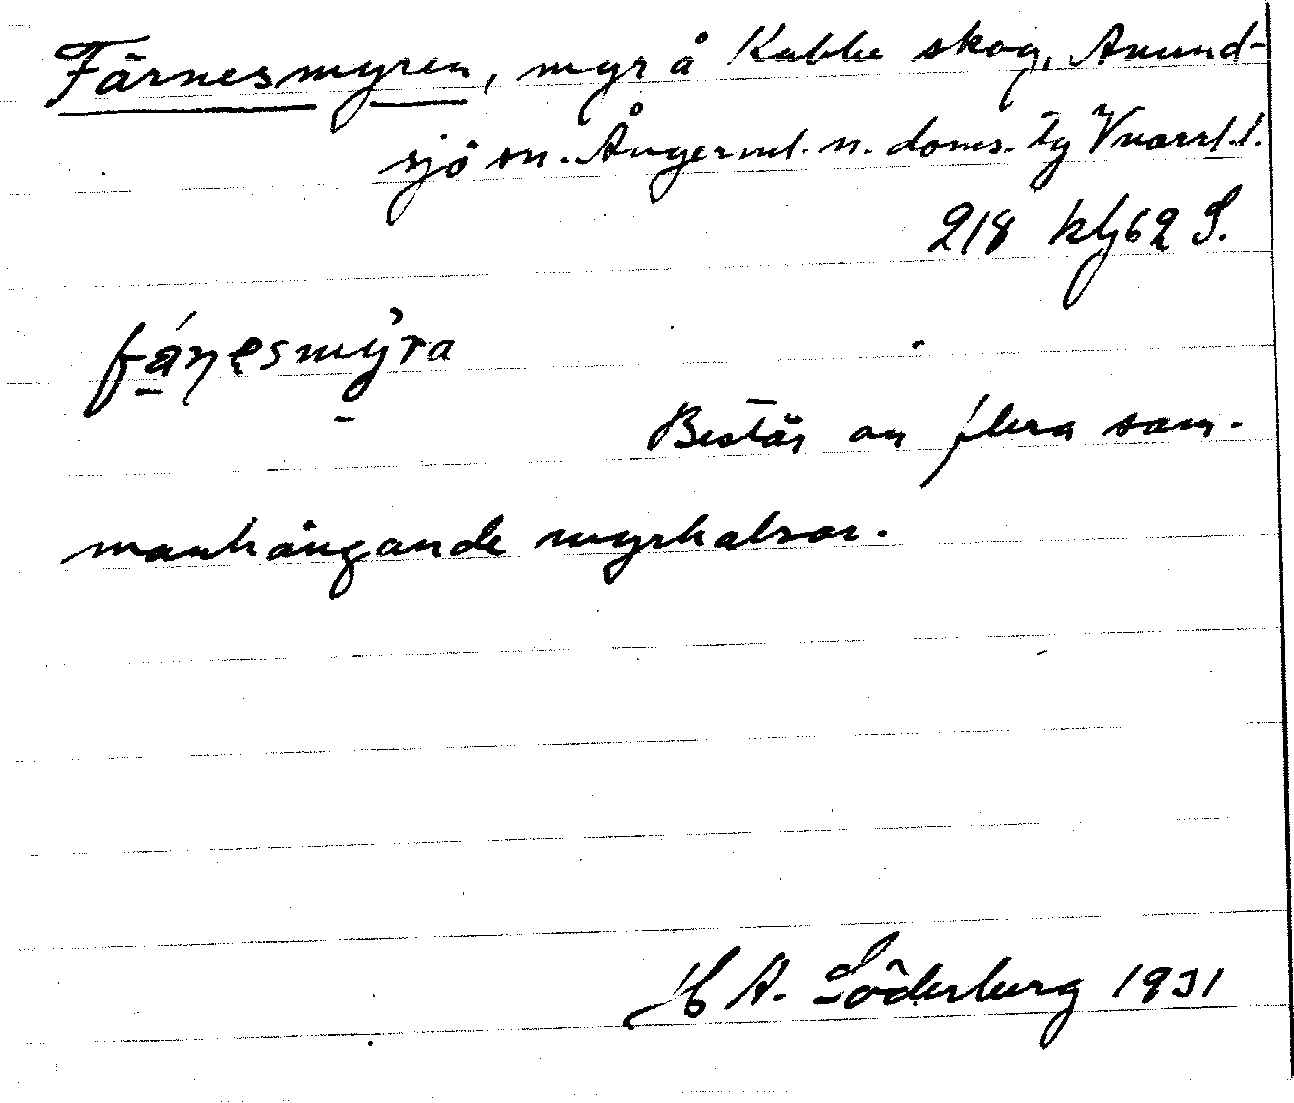 Färnesmyren, myr å Kubbe skog, Anund-
sjö sn. Ångerml. n. doms.
218 klj 62 S.
fáṇesmỳra
Består av flera sam-
manhängande myrhalsar.
H A. Söderberg 1931